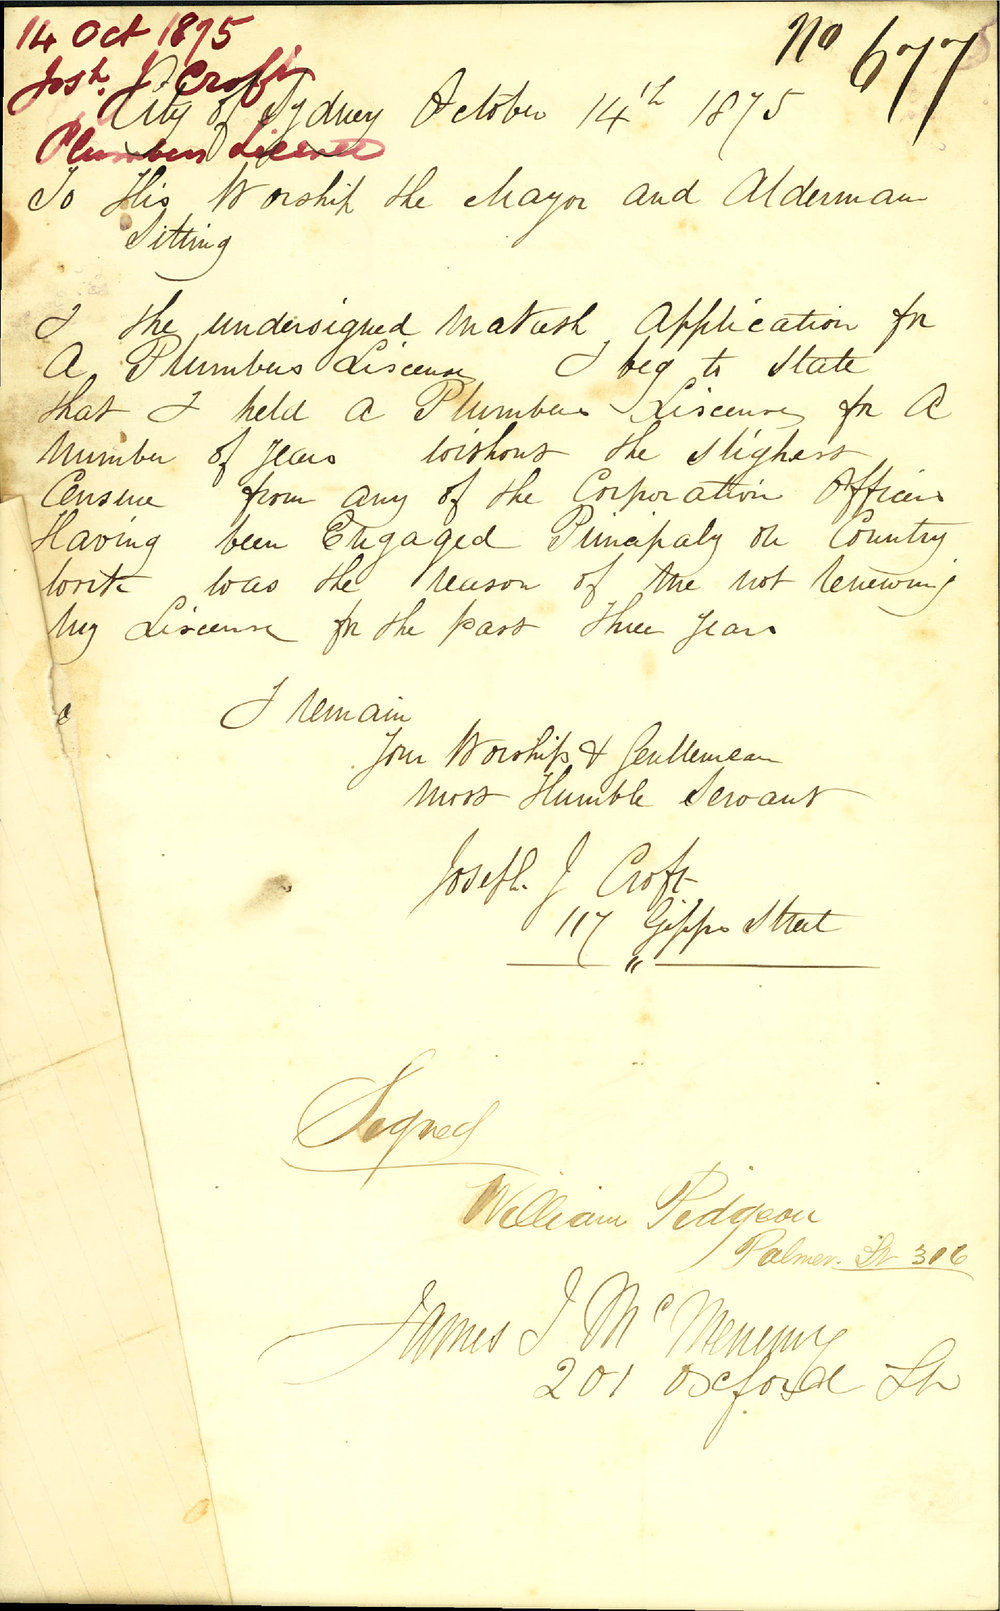 14 Oct 1875
No 677
Josh. J Croft
City of Sydney October 14th 1875
Plumbers Licence
To His Worship the Mayor and Alderman
Sitting
I the undersigned Maketh Application for
A Plumbers Liscense I beg to State
that I held a Plumbers Liscense for A
Number of years without the slighest
Censure from any of the Corporation Officers
Having been Engaged Principaly on Country
work was the reason of me not renewing
My Liscense for the past three years
I remain
Your Worship & Gentlemean
Most Humble Servant
Joseph. J Croft
117 Gipps Street
"
Signed
William Pidgeon
Palmer. St 306
James J McMenemy
201 Oxford St